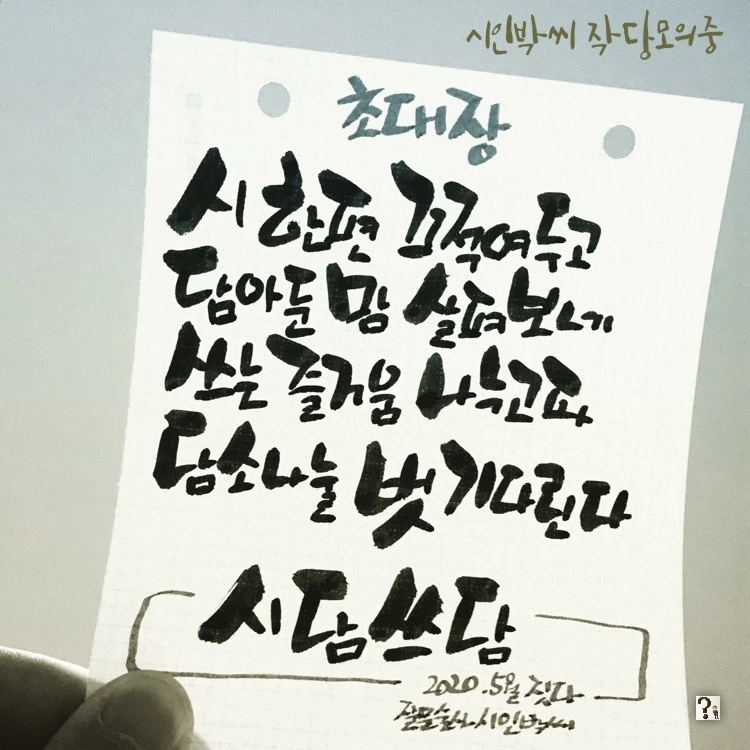 시인박씨 작당모의중
초대장
시 한편 끄적여두고
담아둔 맘 살펴보네
쓰는 즐거움 나누고파
담소나눌 벗 기다린다
시담쓰담
2020.5월 짓다
질문술사시인박씨
?